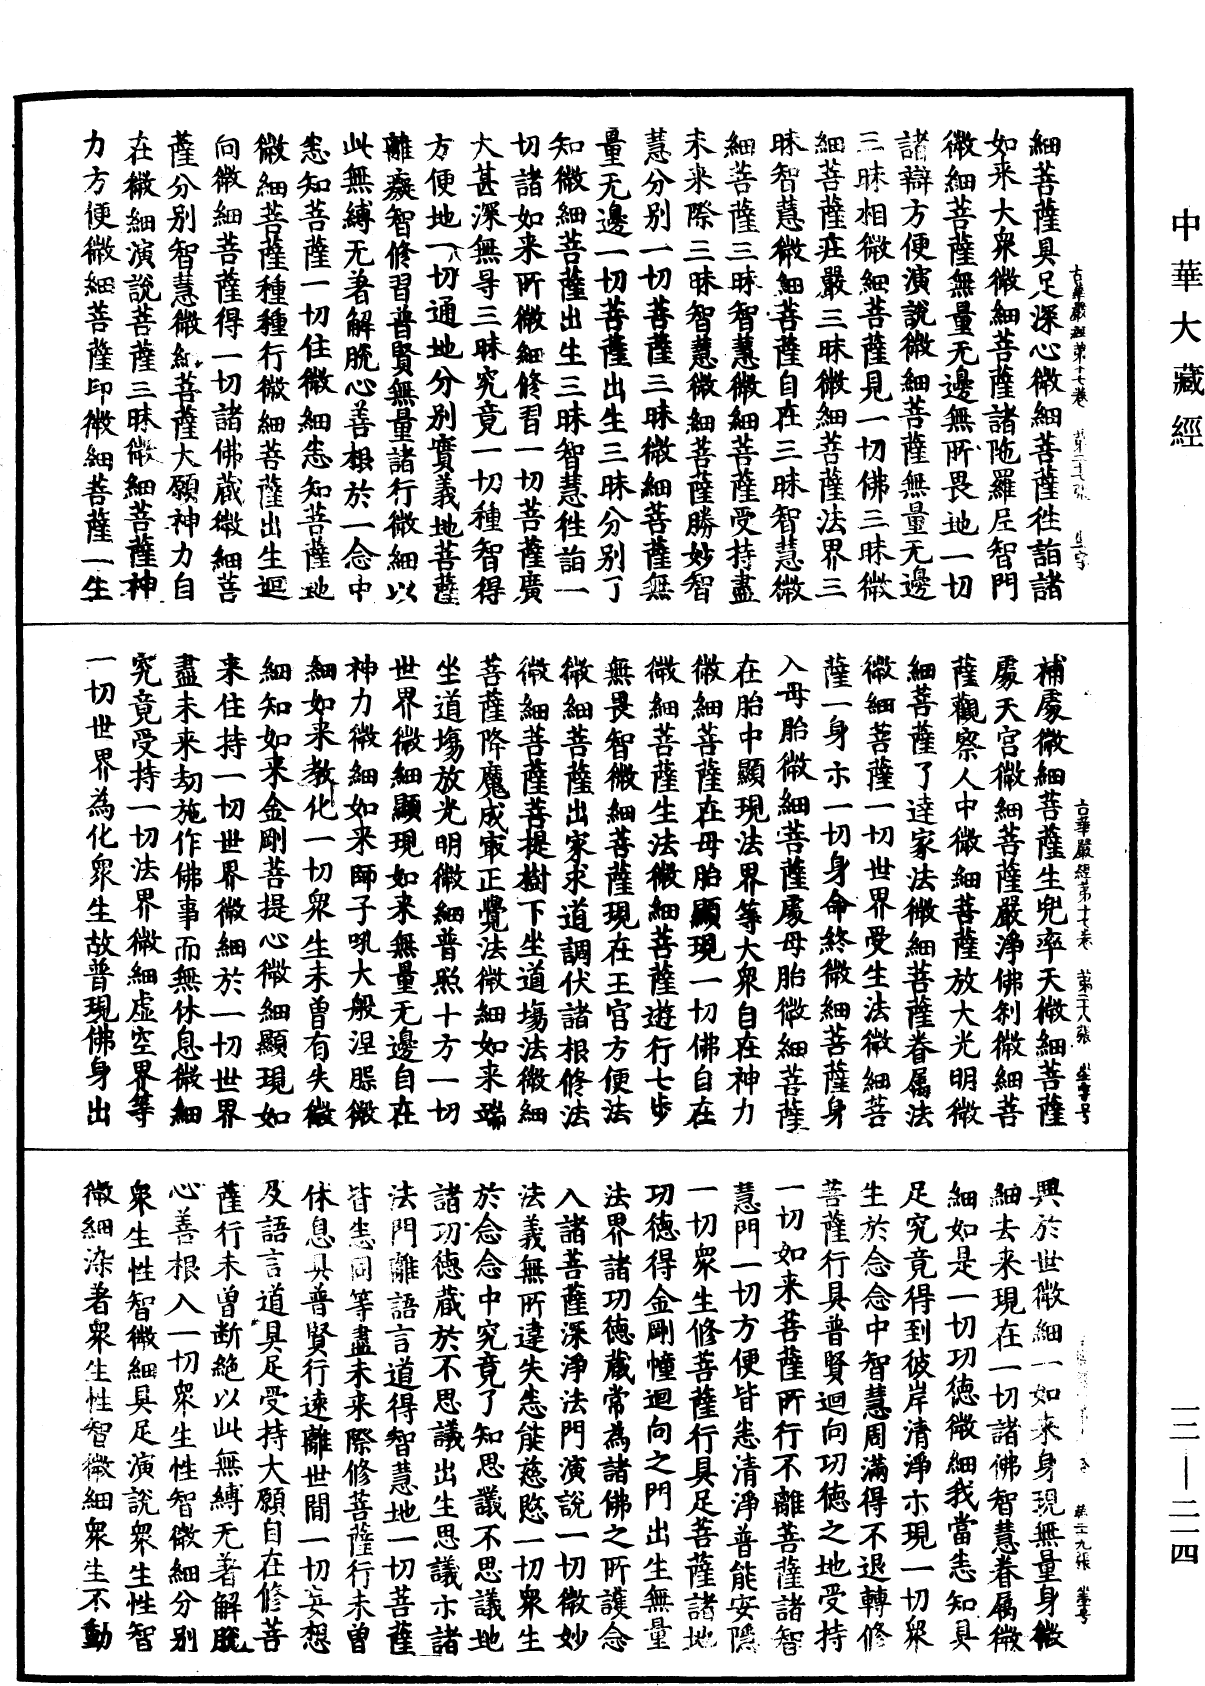 中華大藏經
細菩薩具足深心微細菩薩徃詣諸
如来大衆微細菩薩諸陁羅尼智門
微細菩薩無量无邊無所畏地一切
諸辯方便演說微細菩薩無量无邊
三昧相微細菩薩見一切佛三昧微
細菩薩莊嚴三昧微細菩薩法界三
昧智慧微細菩薩自在三昧智慧微
細菩薩三昧智慧微細菩薩受持盡
未来際三昧智慧微細菩薩勝妙智
慧分别一切菩薩三昧微細菩薩無
量无邊一切菩薩出生三昧分别了
知微細菩薩出生三昧智慧徃詣一
切諸如来所微細修習一切菩薩廣
大甚深無㝵三昧究竟一切種智得
方便地一切通地分别實義地菩薩
離癡智修習普賢無量諸行微細以
此無縛无著解脱心善根於一念中
悉知菩薩一切住微細悉知菩薩地
微細菩薩種種行微細菩薩出生迴
向微細菩薩得一切諸佛藏微細菩
薩分别智慧微細菩薩大願神力自
在微細演說菩薩三昧微細菩薩神
力方便微細菩薩印微細菩薩一生
古華嚴經第十七卷　第二十七張
補處微細菩薩生兜率天微細菩薩
處天宮微細菩薩嚴淨佛刹微細菩
薩觀察人中微細菩薩放大光明微
細菩薩了達家法微細菩薩眷屬法
微細菩薩一切世界受生法微細菩
薩一身亦一切身命終微細菩薩身
入母胎微細菩薩處母胎微細菩薩
在胎中顯現法界等大衆自在神力
微細菩薩在母胎顯現一切佛自在
微細菩薩生法微細菩薩遊行七步
無畏智微細菩薩現在王宮方便法
微細菩薩出家求道調伏諸根修法
微細菩薩菩提樹下坐道場法微細
菩薩降魔成㝡正覺法微細如来端
坐道場放光明微細普照十方一切
世界微細顯現如来無量无邊自在
神力微細如来師子吼大般涅槃微
細如来教化一切衆生未曽有失微
細知如来金剛菩提心微細顯現如
来住持一切世界微細於一切世界
盡未来劫施作佛事而無休息微細
究竟受持一切法界微細虚空界等
一切世界為化衆生故普現佛身出
古華嚴經第十七卷　第二十八張　坐字号
興於世微細一如来身現無量身微
細去来現在一切諸佛智慧眷屬微
細如是一切功德微細我當悉知具
足究竟得到彼岸清淨亦現一切衆
生於念念中智慧周滿得不退轉修
菩薩行具普賢迴向功徳之地受持
一切如来菩薩所行不離菩薩諸智
慧門一切方便皆悉清淨普能安隱
一切衆生修菩薩行具足菩薩諸地
功徳得金剛幢迴向之門出生無量
法界諸功徳藏常為諸佛之所護念
入諸菩薩深淨法門演說一切微妙
法義無所違失悉能慈愍一切衆生
於念念中究竟了知思議不思議地
諸功徳藏於不思議出生思議亦諸
法門離語言道得智慧地一切菩薩
皆悉同等盡未来際修菩薩行未曽
休息具普賢行遠離世間一切妄想
及語言道具足受持大願自在修菩
薩行未曽斷絶以此無縛无著解脱
心善根入一切衆生性智微細分别
衆生性智微細具足演說衆生性智
微細染著衆生性智微細衆生不動
第二十九張　坐字号
一三—二一四